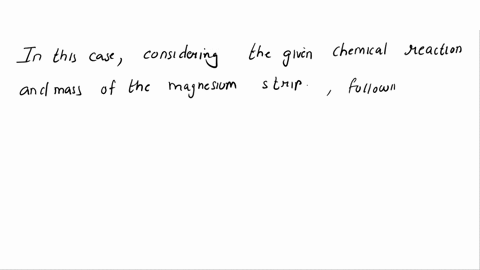 In this case, considering the given chemical reaction
and mass of the magnesium strip. , followi